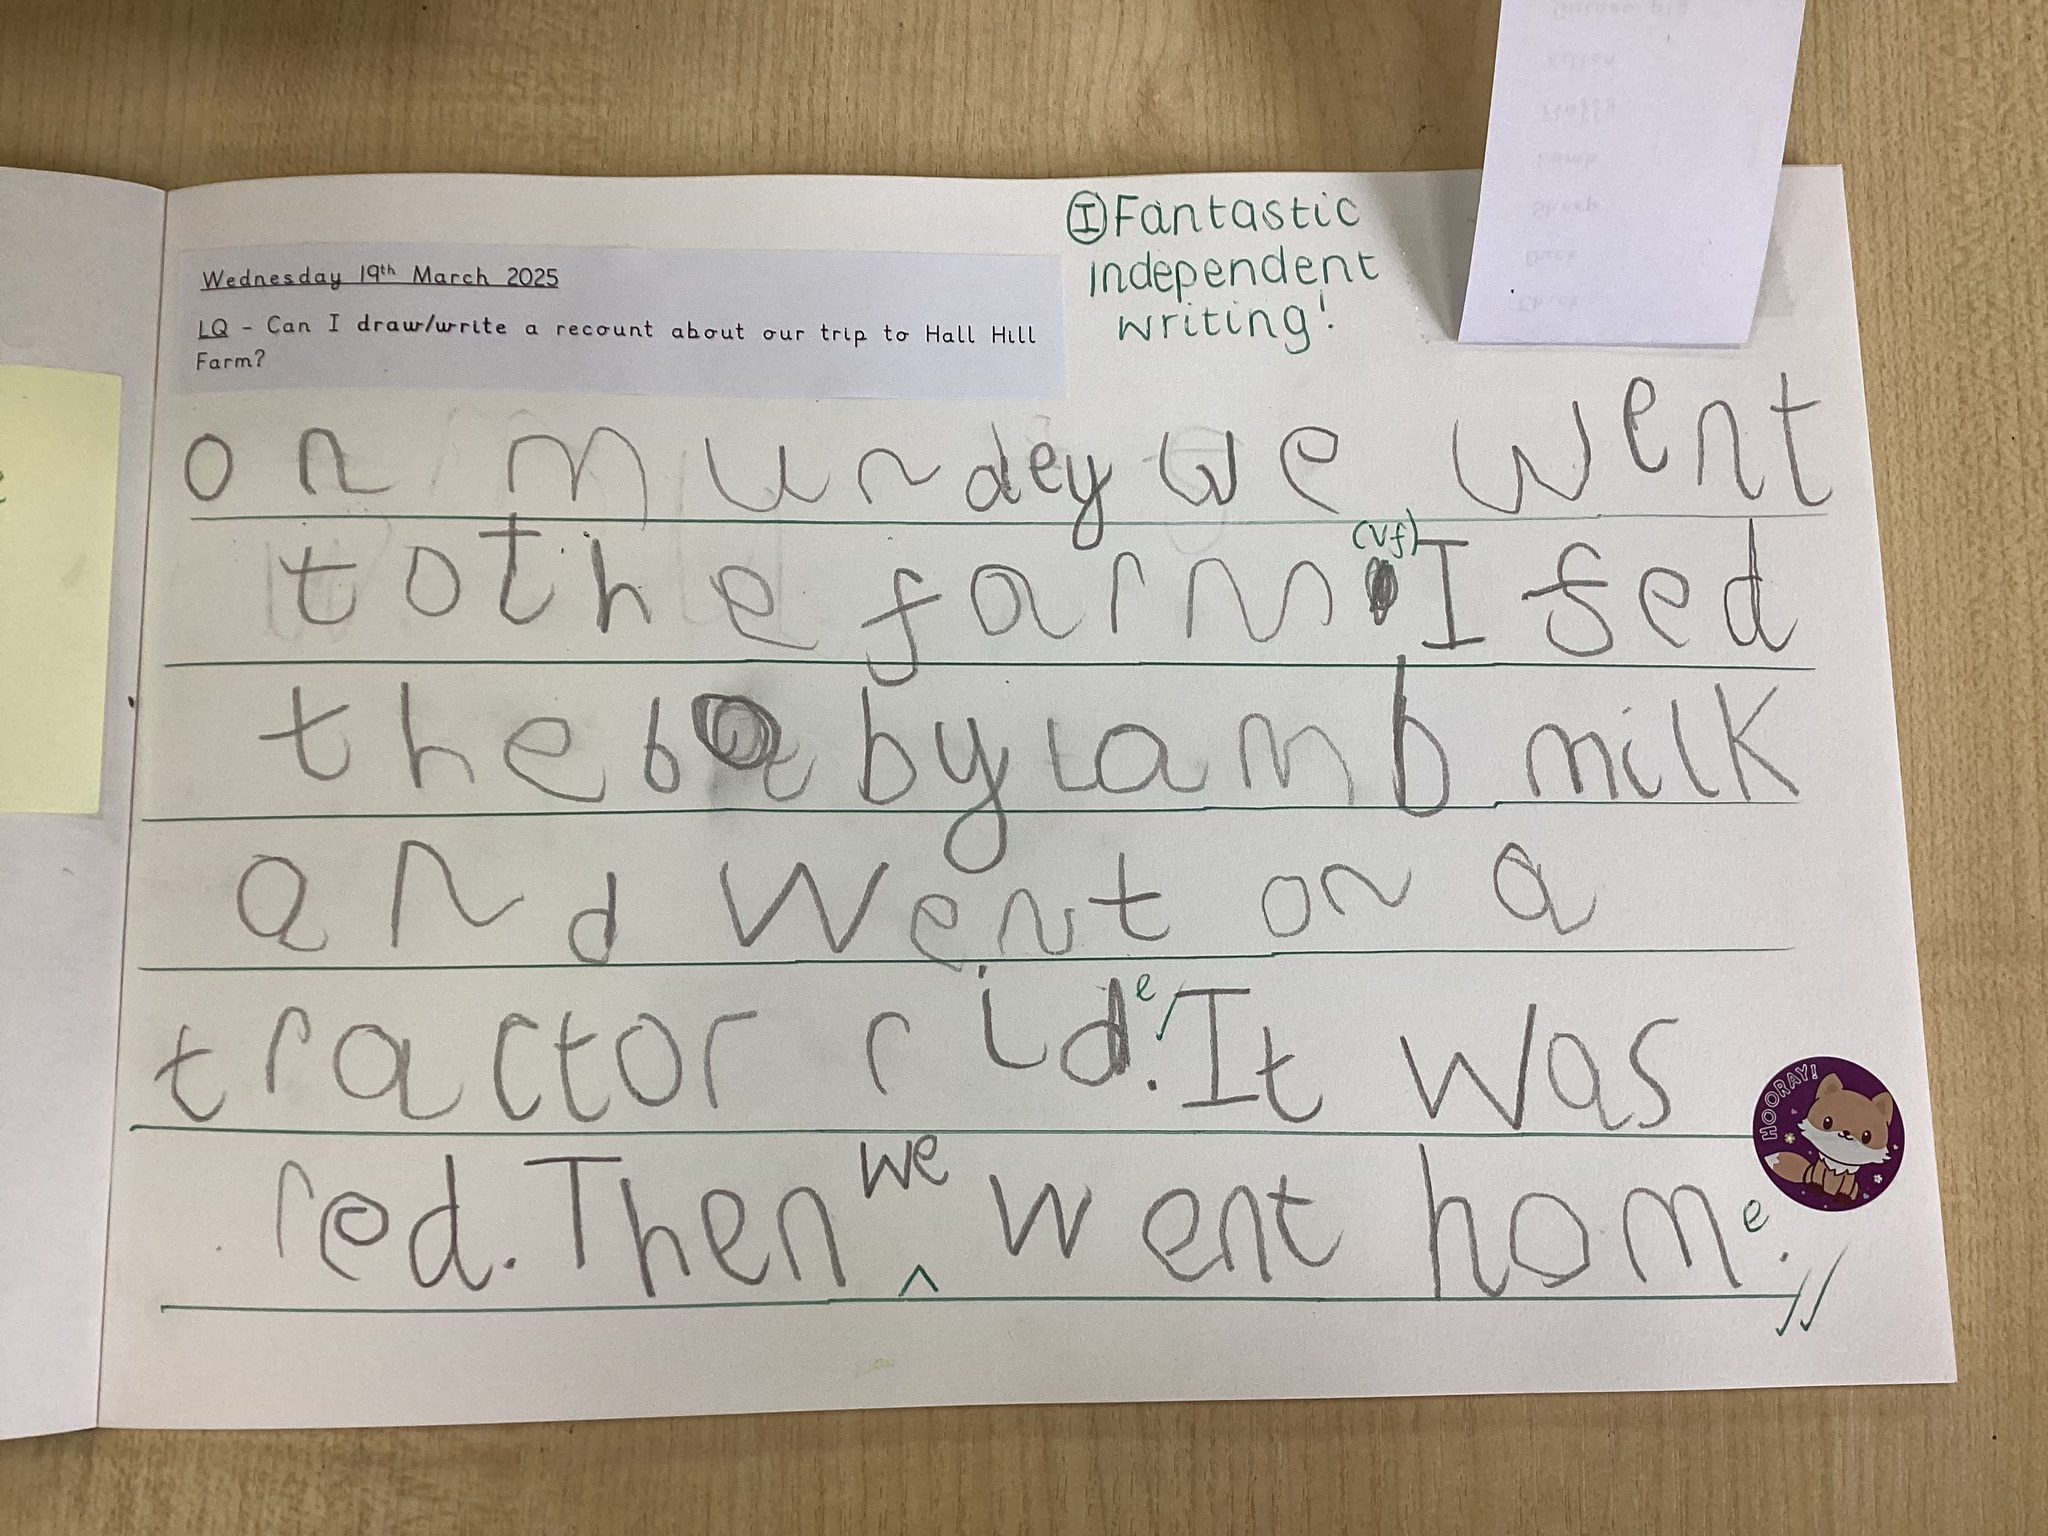 Wednesday 19th March 2025
LQ - Can I draw/write a recount about our trip to Hall Hill
Farm?
(I) Fantastic
independent
writing!
on mundey we went
(vf)
to the farm. I fed
the baby lamb milk
and went on a
tractor ride. It was
red. Then we went home.
HOORAY!
Lamb
Sheep
Duck
Chick